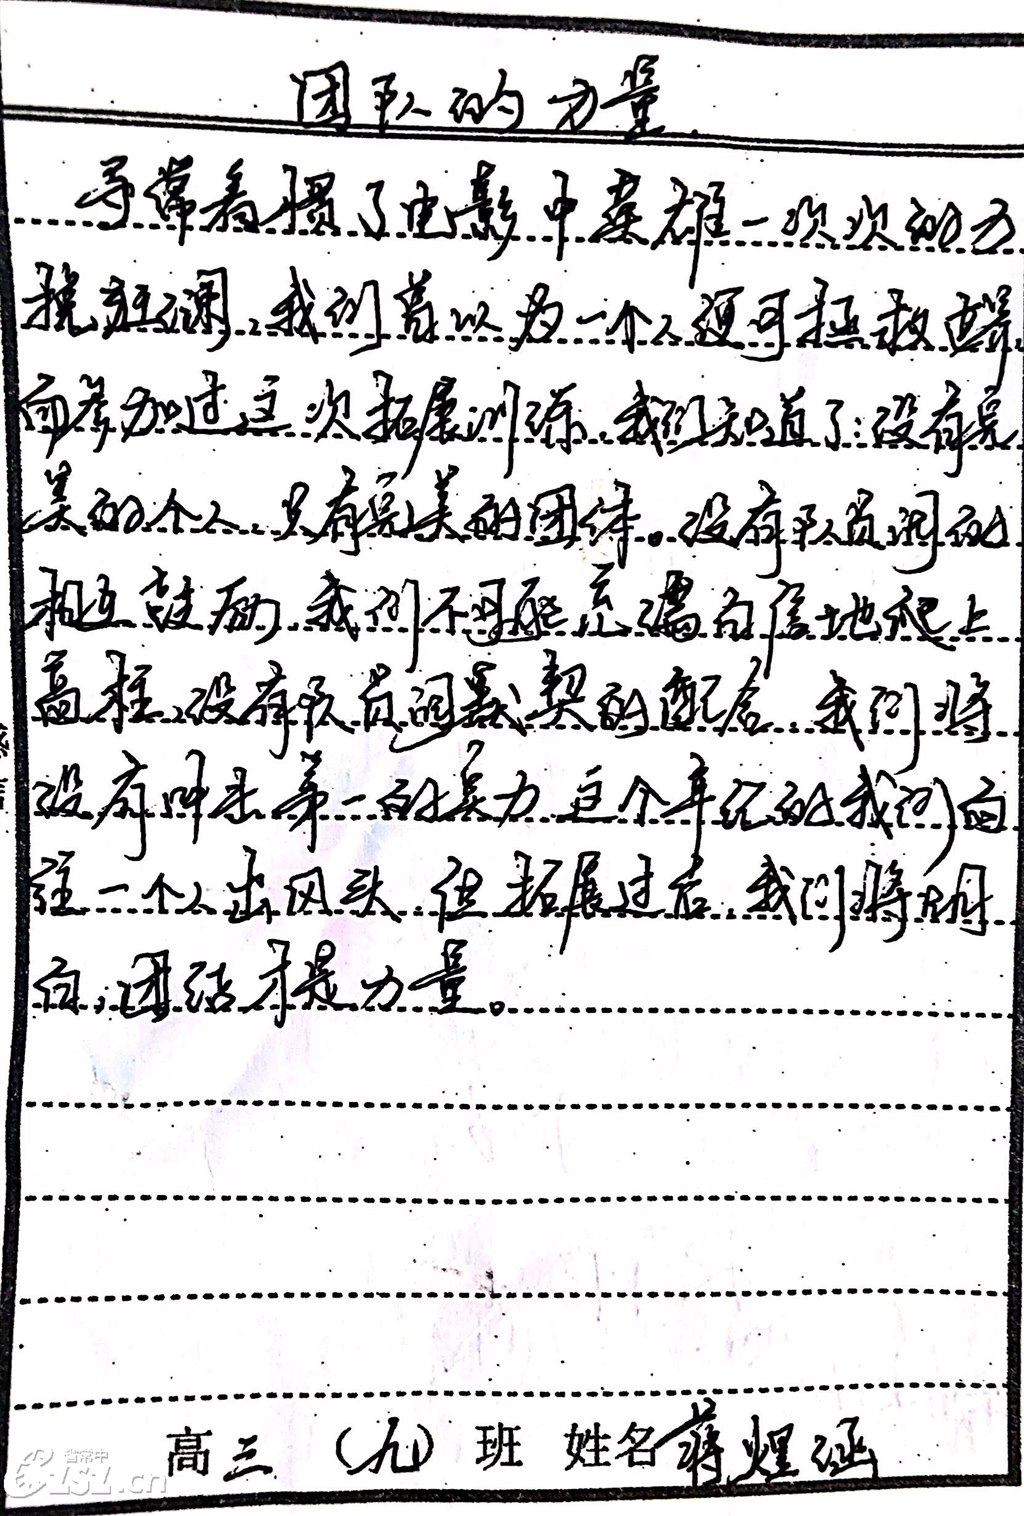 团队的力量
寻常看惯了电影中英雄一次次的力
挽狂澜,我们曾以为一个人便可拯救世界,
而参加过这次拓展训练,我们知道了:没有完
美的个人,只有完美的团体。没有队员间的
相互鼓励,我们不可能充满自信地爬上
高柱,没有队员间默契的配合,我们将
没有冲击第一的实力,这个年纪的我们向
往一个人出风头,但拓展过后,我们将明
白,团结才是力量。
高三(九)班 姓名 蒋煜涵
省常中
CZSZ.cn